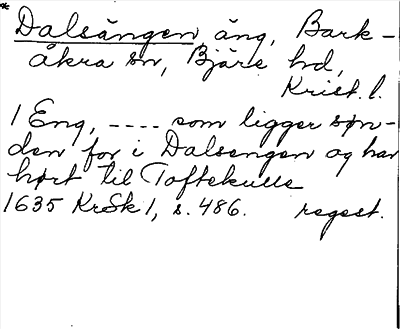 * Dalsängen äng, Bark-
åkra sn, Bjäre hd,
Krist. l.
1 Eng, ---- som ligger søn-
den for i Dalsengen og har
hørt til Toftekulle
1635 KrSk 1, s. 486. regest.